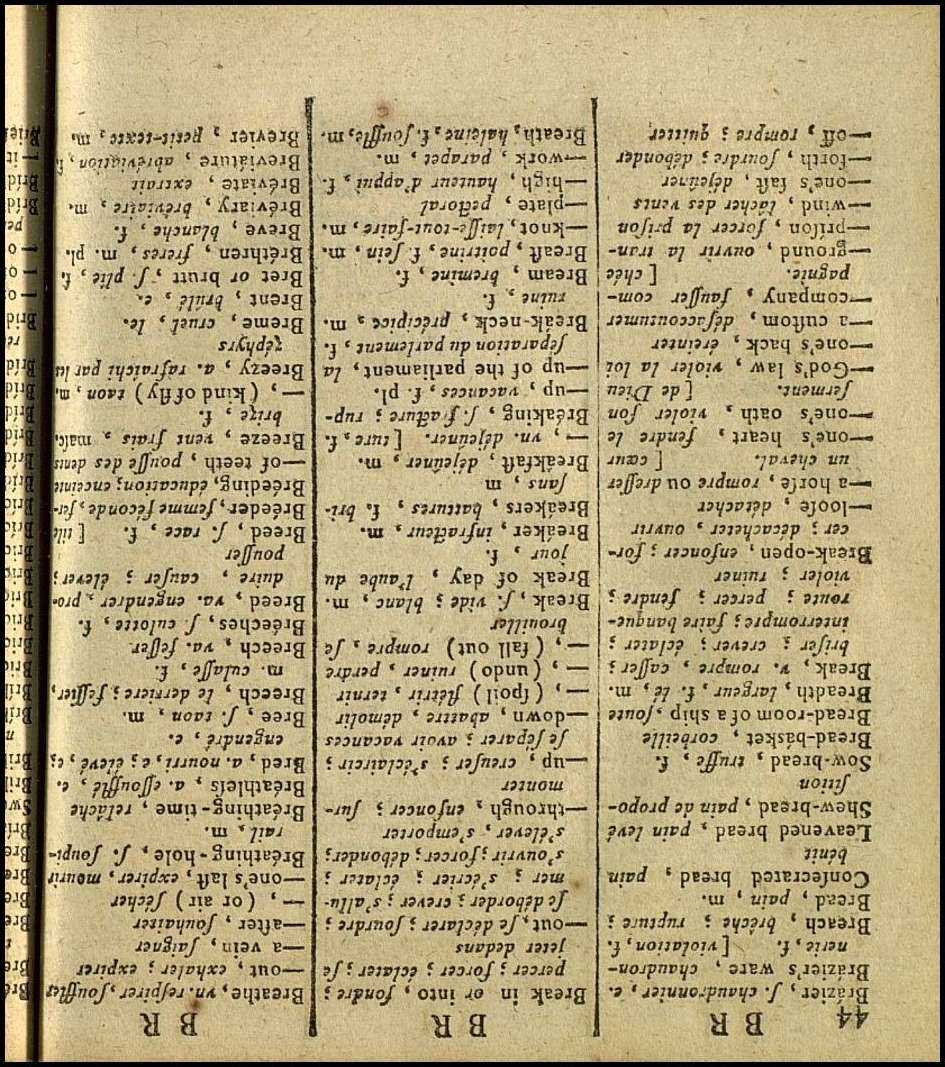 44
B R
Brázier, ſ. chaudronnier, e.
Brázier's ware, chaudron-
nerie, f. [violation, f.
Breach, brèche; rupture;
Bread, pain, m.
Conſecrated bread, pain
bénit
Leavened bread, pain levé
Shew-bread, pain de propo-
ſition
Sow-bread, truffe, f.
Bread-básket, corbeille
Bread-room of a ship, ſoute
Breadth, largeur, f. lé, m.
Break, v. rompre, caſſer;
briſer; crever; éclater;
interrompre; faire banque-
route; percer; fendre;
violer; ruiner
Break-open, enfoncer; for-
cer; décacheter, ouvrir
—looſe, détacher
—a horſe, rompre ou dreſſer
un cheval. [cœur
—one's heart, fendre le
—one's oath, violer ſon
ſerment. [de Dieu
—God's law, violer la loi
—one's back, éreinter
—a cuſtom, déſaccoutumer
—company, fauſſer com-
pagnie. [chée
—ground, ouvrir la tran-
—priſon, forcer la priſon
—wind, lâcher des vents
—one's faſt, déjeûner
—forth, ſourdre; débonder
—off, rompre; quitter
B R
Break in or into, fondre;
percer; forcer; éclater; ſe
jeter dedans
—out, ſe déclarer; ſourdre;
ſe déborder; crever; s'allu-
mer; s'écrier; éclater;
s'ouvrir; forcer; débonder;
s'élever, s'emporter
—through, enfoncer; ſur-
monter
—up, creuſer; s'éclaircir;
ſe ſéparer; avoir vacances
—down, abattre, démolir
—, (ſpoil) flétrir, ternir
—, (undo) ruiner, perdre
—, (fall out) rompre, ſe
brouiller
Break, ſ. vide; blanc, m.
Break of day, l'aube du
jour, f.
Breaker, infracteur, m.
Breakers, battures, f. bri-
ſans, m
Breákfaſt, déjeûner, m.
—, vn. déjeûner. [ture, f.
Bréaking, ſ. fracture; rup-
—up, vacances, f. pl.
—up of the parliament, la
ſéparation du parlement, f.
Breák-neck, précipice, m.
ruine, f.
Bream, bremine, f.
Breaſt, poitrine, f. ſein, m.
—knot, laiſſe-tout-faire, m.
—plate, pectoral
—high, hauteur d'appui, f.
—work, parapet, m.
Breath, haleine, f. ſouffle, m.
B R
Breathe, vn. reſpirer, ſouffler
—out, exhaler; expirer
—a vein, ſaigner
—after, ſouhaiter
—, (or air) ſécher
—one's laſt, expirer, mourir
Bréathing-hole, ſ. ſoupi-
rail, m.
Bréathing-time, relâche
Bréathleſs, a. eſſoufflé, e.
Bred, a. nourri, e; élevé, e;
engendré, e.
Bree, ſ. taon, m.
Breech, le derriere; feſſier,
m. culaſſe, f.
Breech, va. feſſer.
Bréeches, ſ. culotte, f.
Breed, va. engendrer, pro-
duire, cauſer; élever;
pouſſer
Breed, ſ. race, f. [tile
Bréeder, femme féconde, fer-
Bréeding, éducation; enceinte
—of teeth, pouſſe des dents
Breeze, vent frais, maſc.
brize, f.
—, (kind of fly) taon, m.
Breezy, a. rafraîchi par les
zéphyrs
Breme, cruel, le.
Brent, brûlé, e.
Bret or brutt, ſ. plie, f.
Bréthren, freres, m. pl.
Breve, blanche, f.
Bréviary, bréviaire, m.
Bréviate, extrait
Bréviature, abréviation, f.
Brevier, petit-texte, m.